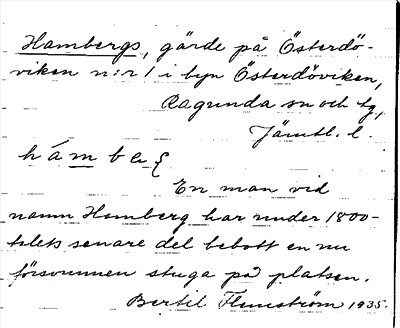 Hambergs, gärde på Österdö-
viken n:r 1 i byn Österdöviken,
Ragunda sn och tg,
Jämtl. l.
En man vid
namn Hamberg har under 1800-
talets senare del bebott en nu
försvunnen stuga på platsen.
Bertil Flemström 1935.